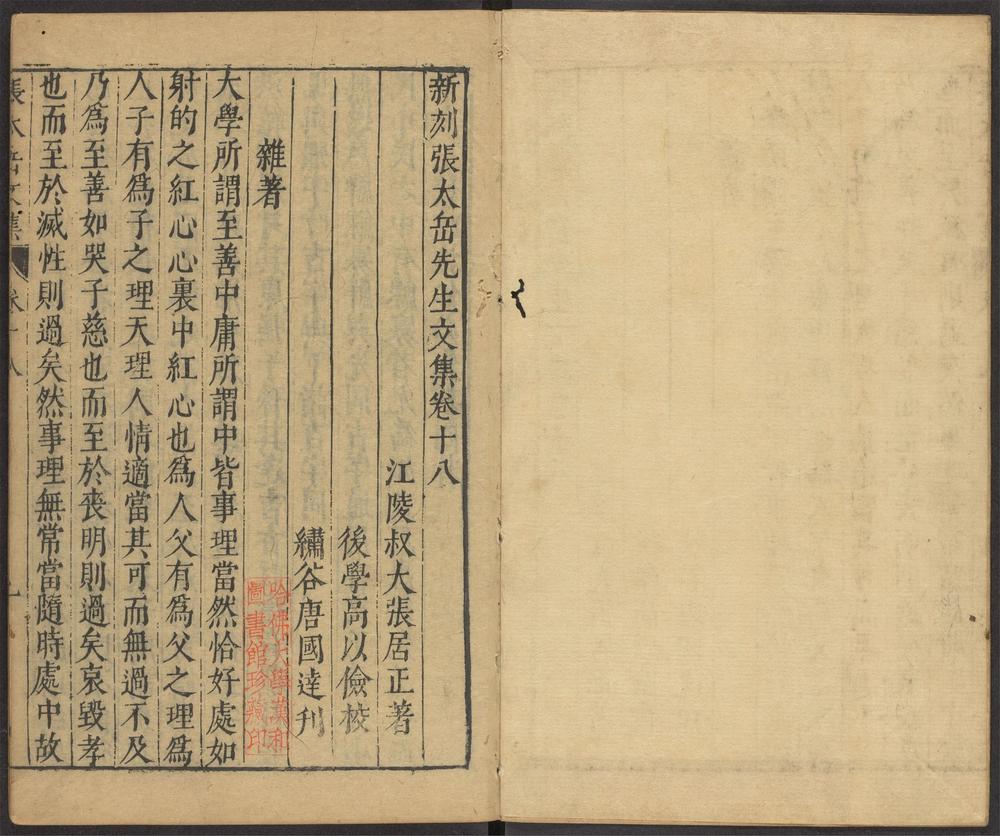 新刻張太岳先生文集卷十八
江陵叔大張居正著
後學高以儉校
繡谷唐國達刋
雜著
大學所謂至善中庸所謂中皆事理當然恰好處如
射的之紅心心裏中紅心也爲人父有爲父之理爲
人子有爲子之理天理人情適當其可而無過不及
乃爲至善如哭子慈也而至於喪明則過矣哀毀孝
也而至於滅性則過矣然事理無常當隨時處中故
張太岳文集
卷十八
哈佛大學漢和
圖書館珍藏印